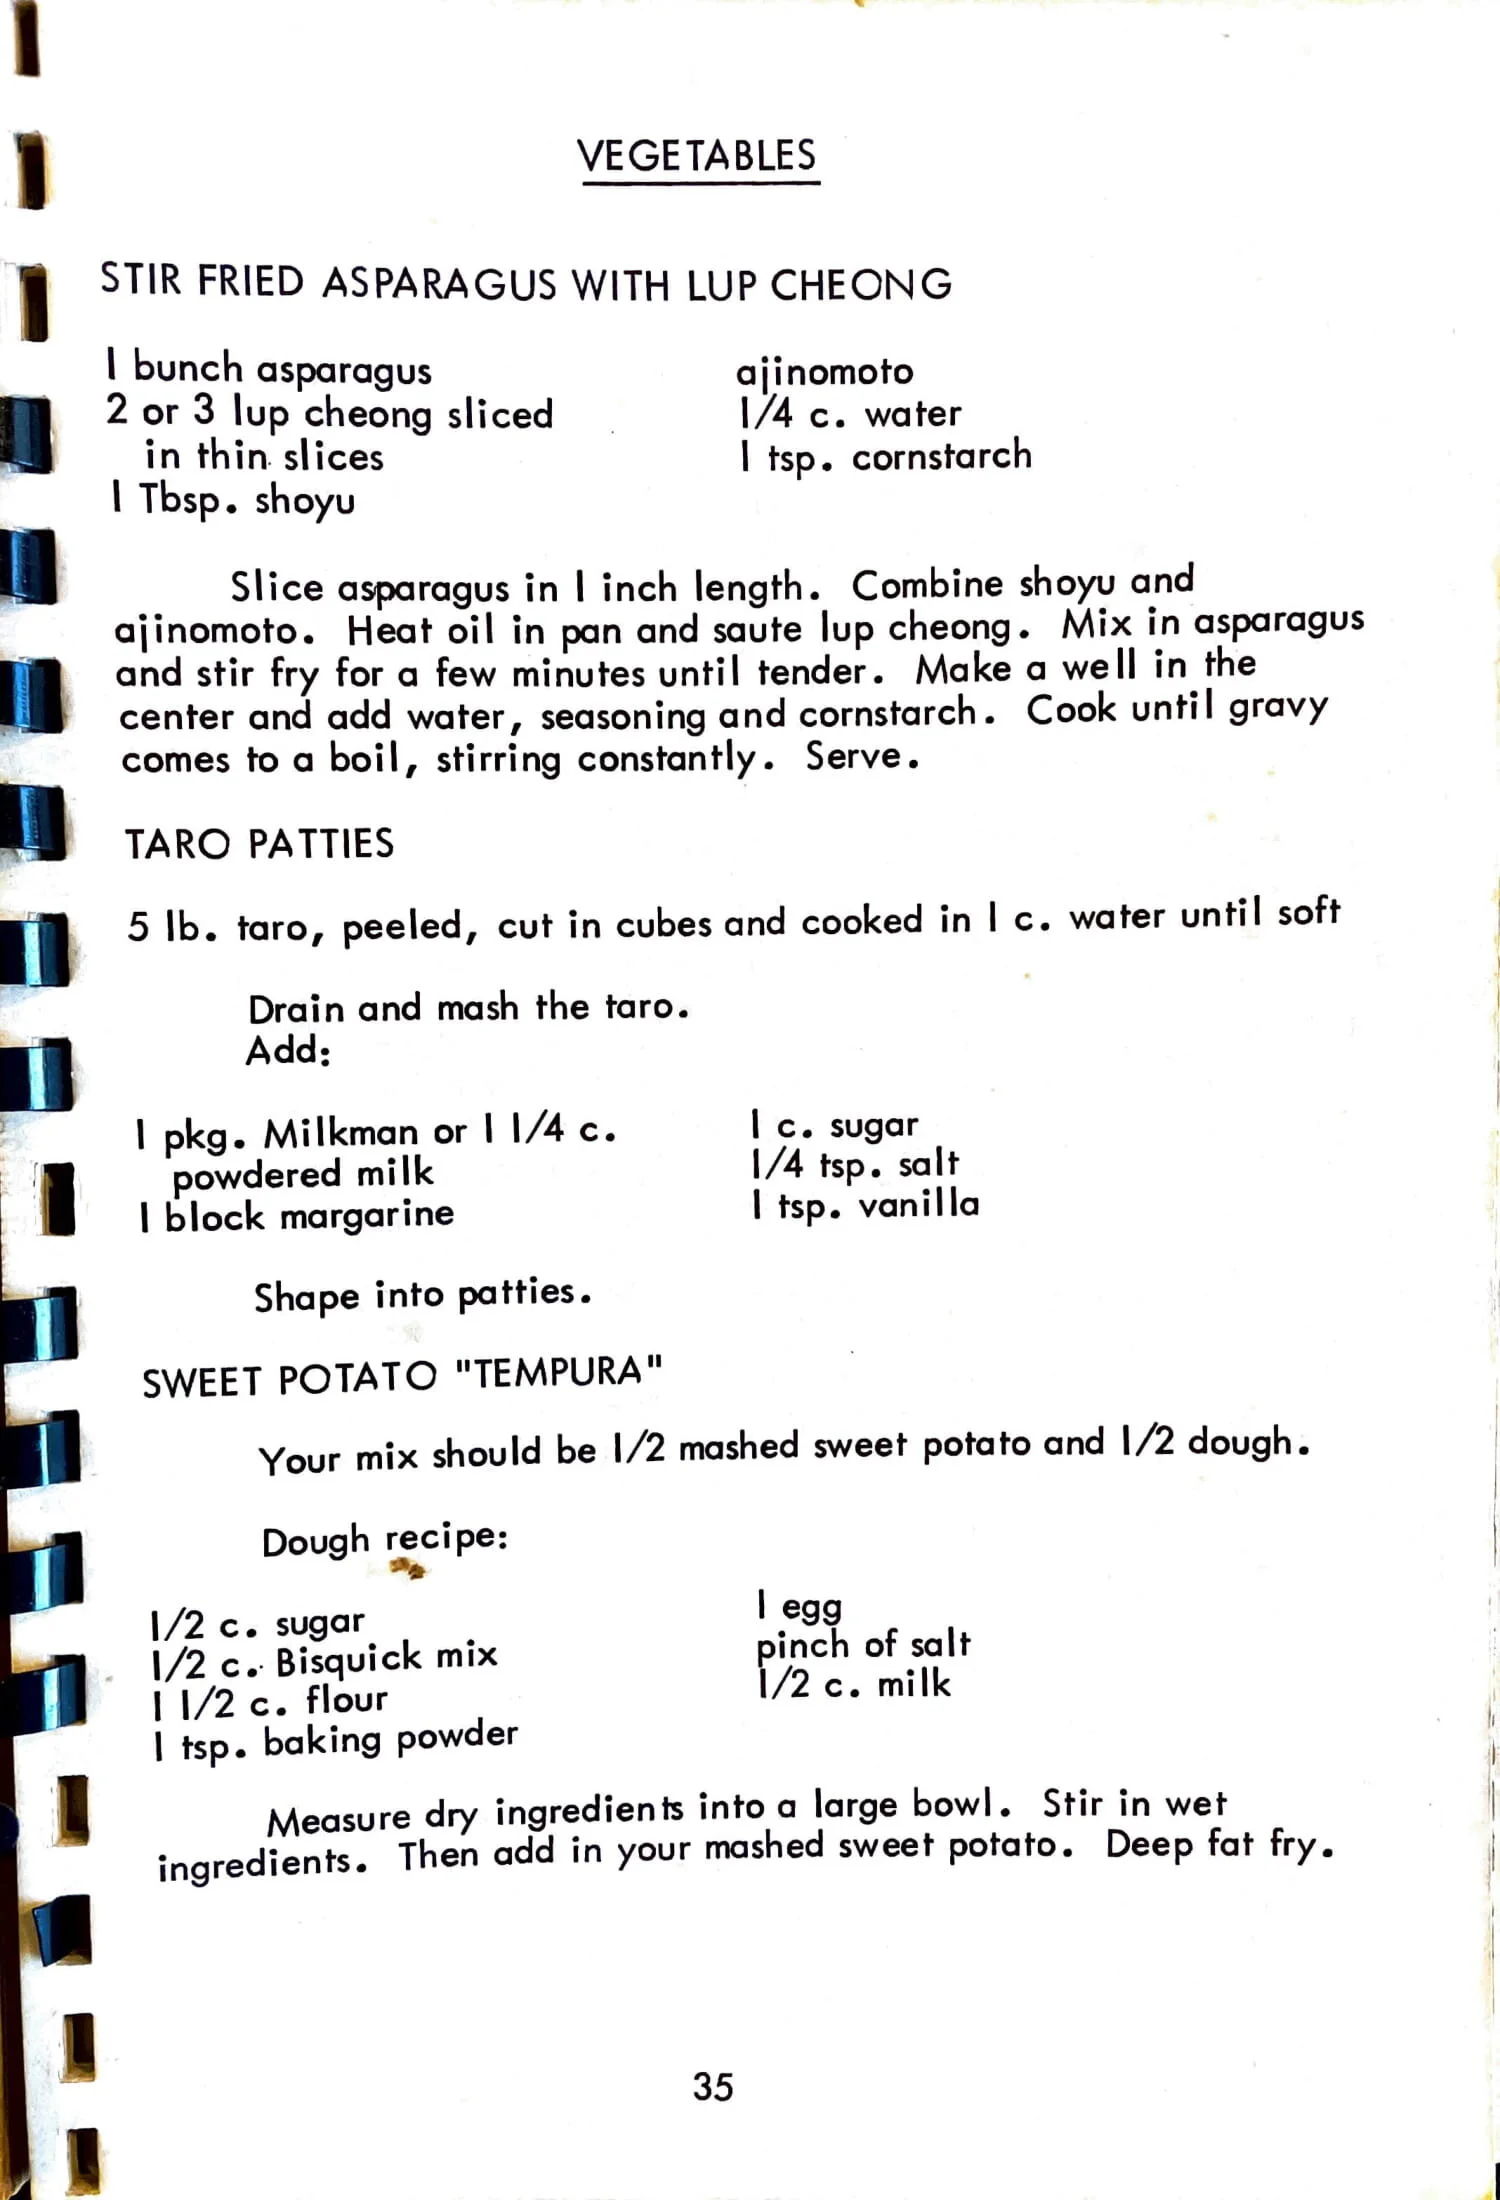 VEGETABLES
STIR FRIED ASPARAGUS WITH LUP CHEONG
1 bunch asparagus
2 or 3 lup cheong sliced
in thin slices
1 Tbsp. shoyu
ajinomoto
1/4 c. water
1 tsp. cornstarch
Slice asparagus in 1 inch length. Combine shoyu and
ajinomoto. Heat oil in pan and saute lup cheong. Mix in asparagus
and stir fry for a few minutes until tender. Make a well in the
center and add water, seasoning and cornstarch. Cook until gravy
comes to a boil, stirring constantly. Serve.
TARO PATTIES
5 lb. taro, peeled, cut in cubes and cooked in 1 c. water until soft
Drain and mash the taro.
Add:
1 pkg. Milkman or 1 1/4 c.
powdered milk
1 block margarine
1 c. sugar
1/4 tsp. salt
1 tsp. vanilla
Shape into patties.
SWEET POTATO "TEMPURA"
Your mix should be 1/2 mashed sweet potato and 1/2 dough.
Dough recipe:
1/2 c. sugar
1/2 c. Bisquick mix
1 1/2 c. flour
1 tsp. baking powder
1 egg
pinch of salt
1/2 c. milk
Measure dry ingredients into a large bowl. Stir in wet
ingredients. Then add in your mashed sweet potato. Deep fat fry.
35